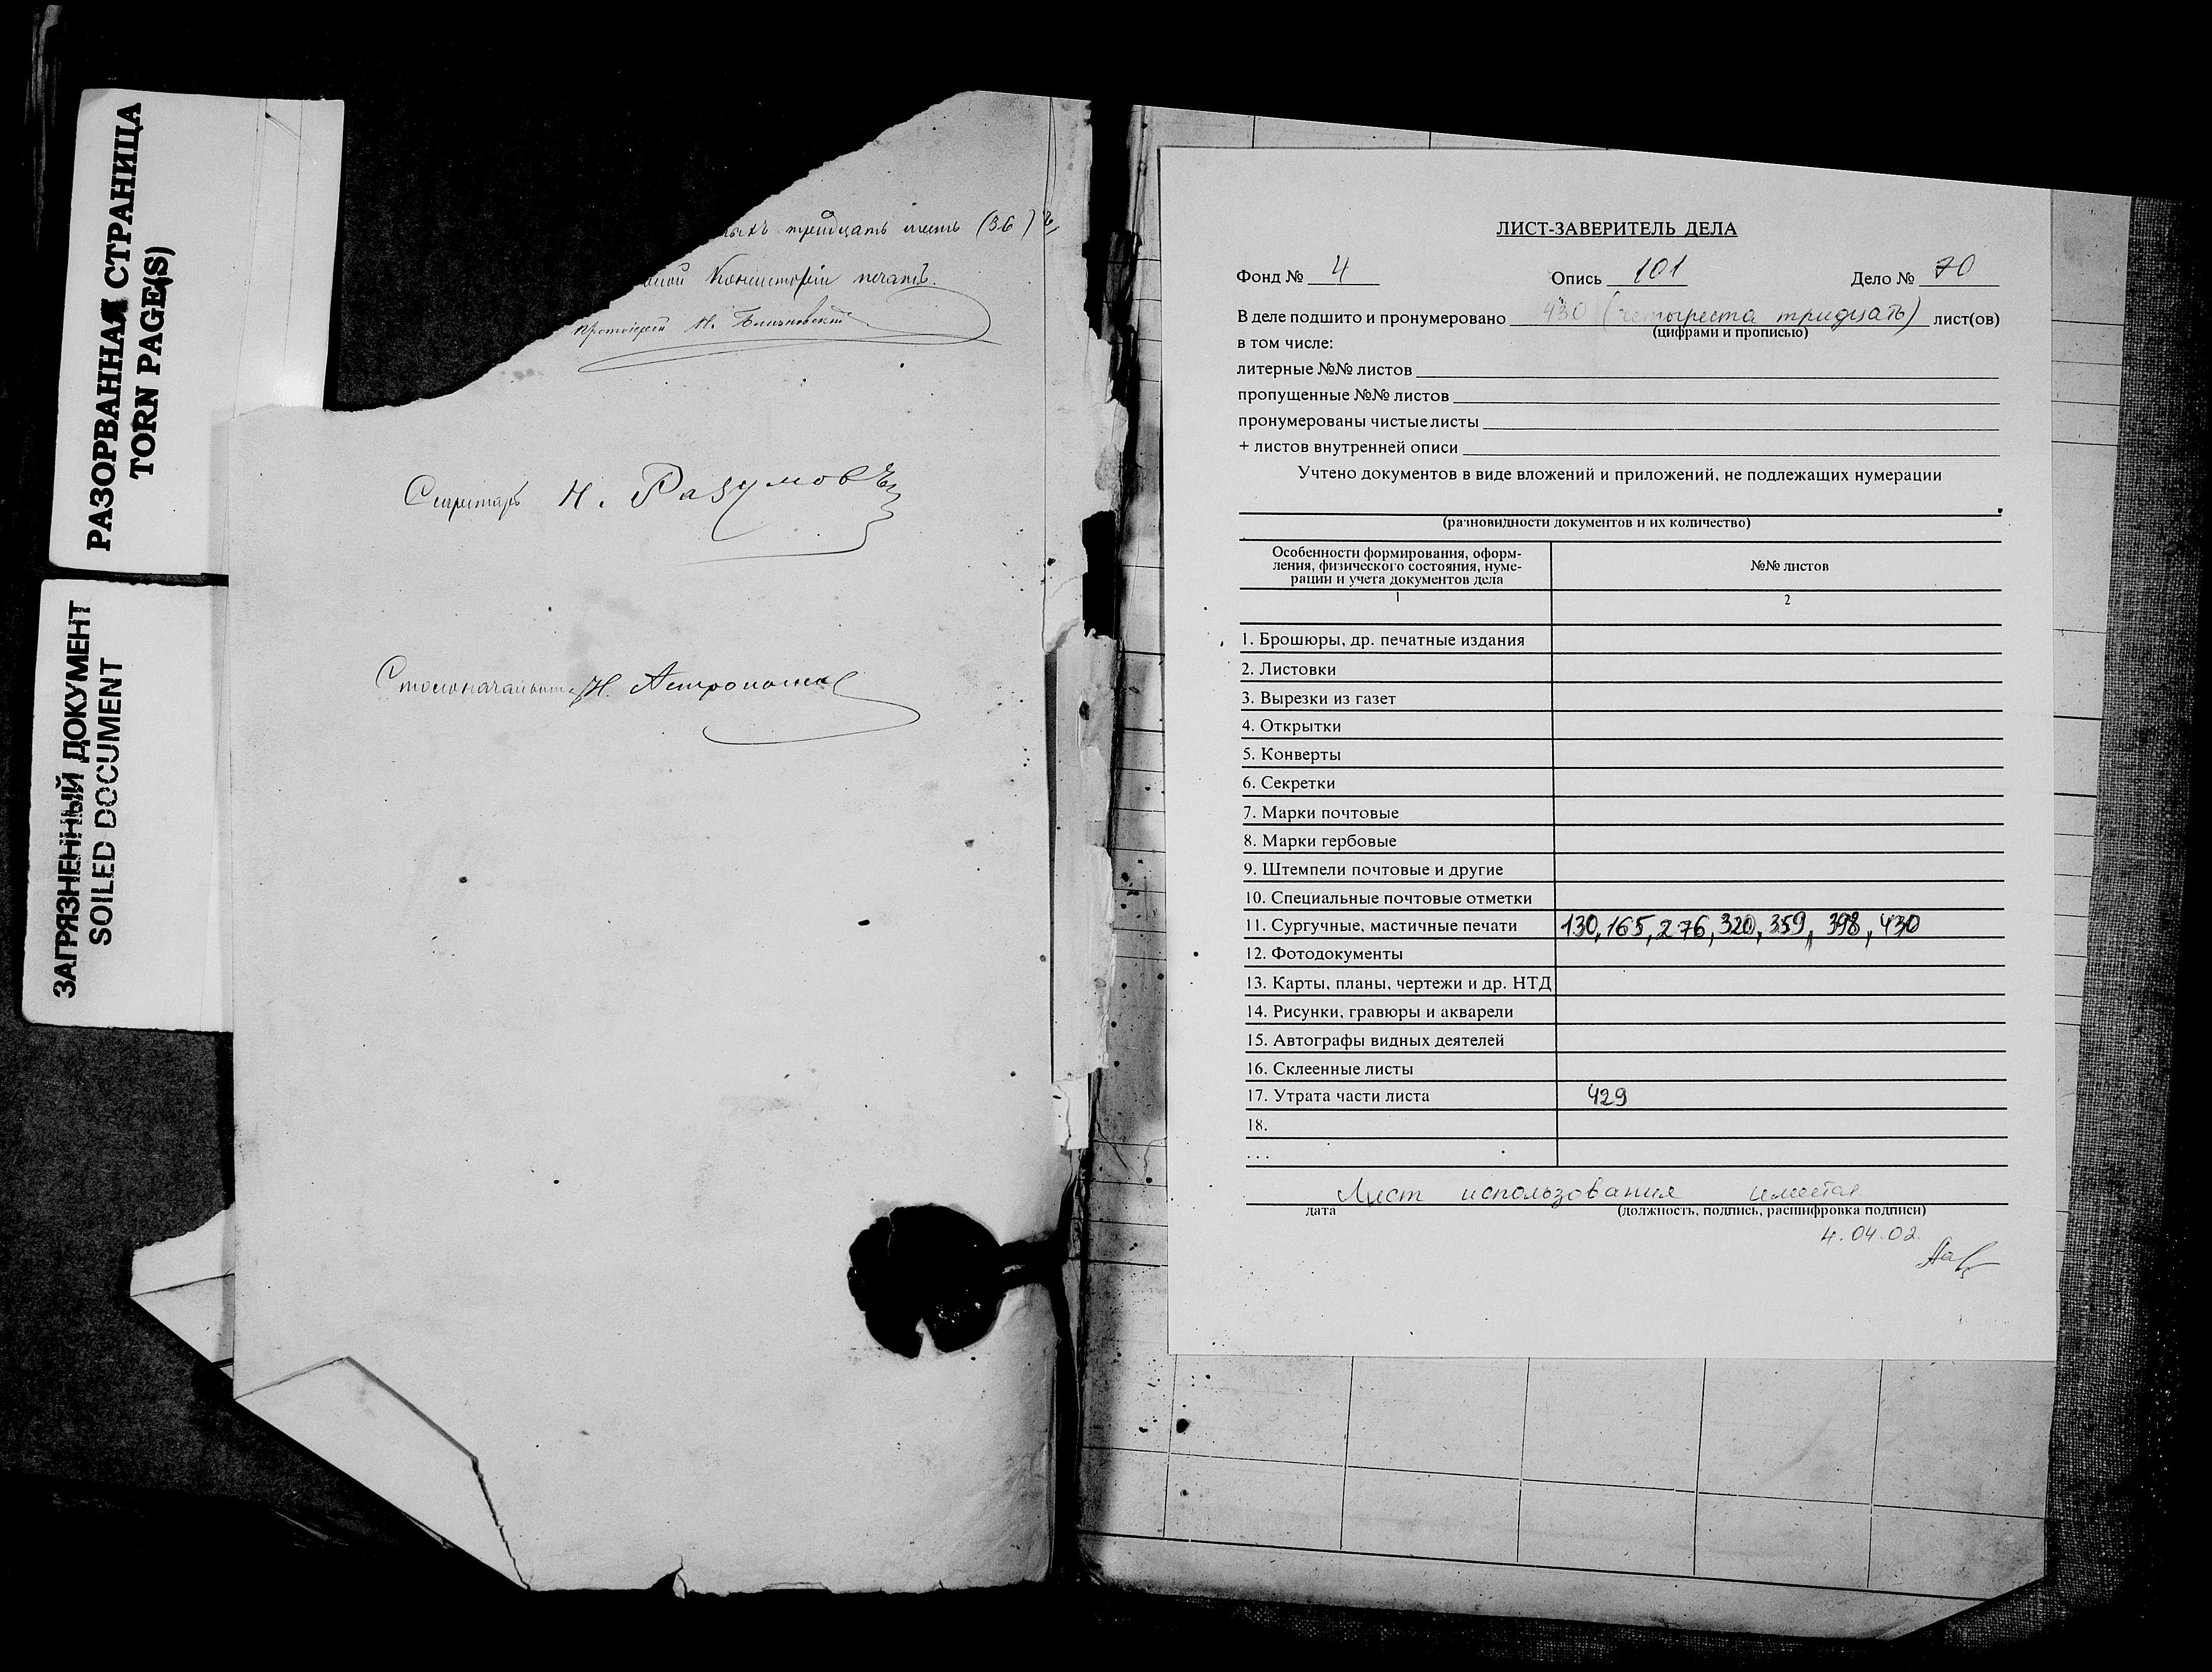 РАЗОРВАННАЯ СТРАНИЦА
TORN PAGE(S)
ЗАГРЯЗНЕННЫЙ ДОКУМЕНТ
SOILED DOCUMENT
тридцать шесть (36)
Консисторіи печать.
Протоіерей Н.
Секретарь Н. Разумовъ
Столоначальникъ Н.
ЛИСТ-ЗАВЕРИТЕЛЬ ДЕЛА
Фонд № 4 Опись 101 Дело № 70
В деле подшито и пронумеровано 430 (четыреста тридцать) лист(ов)
(цифрами и прописью)
в том числе:
литерные №№ листов
пропущенные №№ листов
пронумерованы чистые листы
+ листов внутренней описи
Учтено документов в виде вложений и приложений, не подлежащих нумерации
(разновидности документов и их количество)
Особенности формирования, оформ-
ления, физического состояния, нуме-
рации и учета документов дела
№№ листов
1 2
1. Брошюры, др. печатные издания
2. Листовки
3. Вырезки из газет
4. Открытки
5. Конверты
6. Секретки
7. Марки почтовые
8. Марки гербовые
9. Штемпели почтовые и другие
10. Специальные почтовые отметки
11. Сургучные, мастичные печати 130, 165, 276, 320, 359, 398, 430
12. Фотодокументы
13. Карты, планы, чертежи и др. НТД
14. Рисунки, гравюры и акварели
15. Автографы видных деятелей
16. Склеенные листы
17. Утрата части листа 429
18.
. . .
Лист использования имеется
дата (должность, подпись, расшифровка подписи)
4.04.02